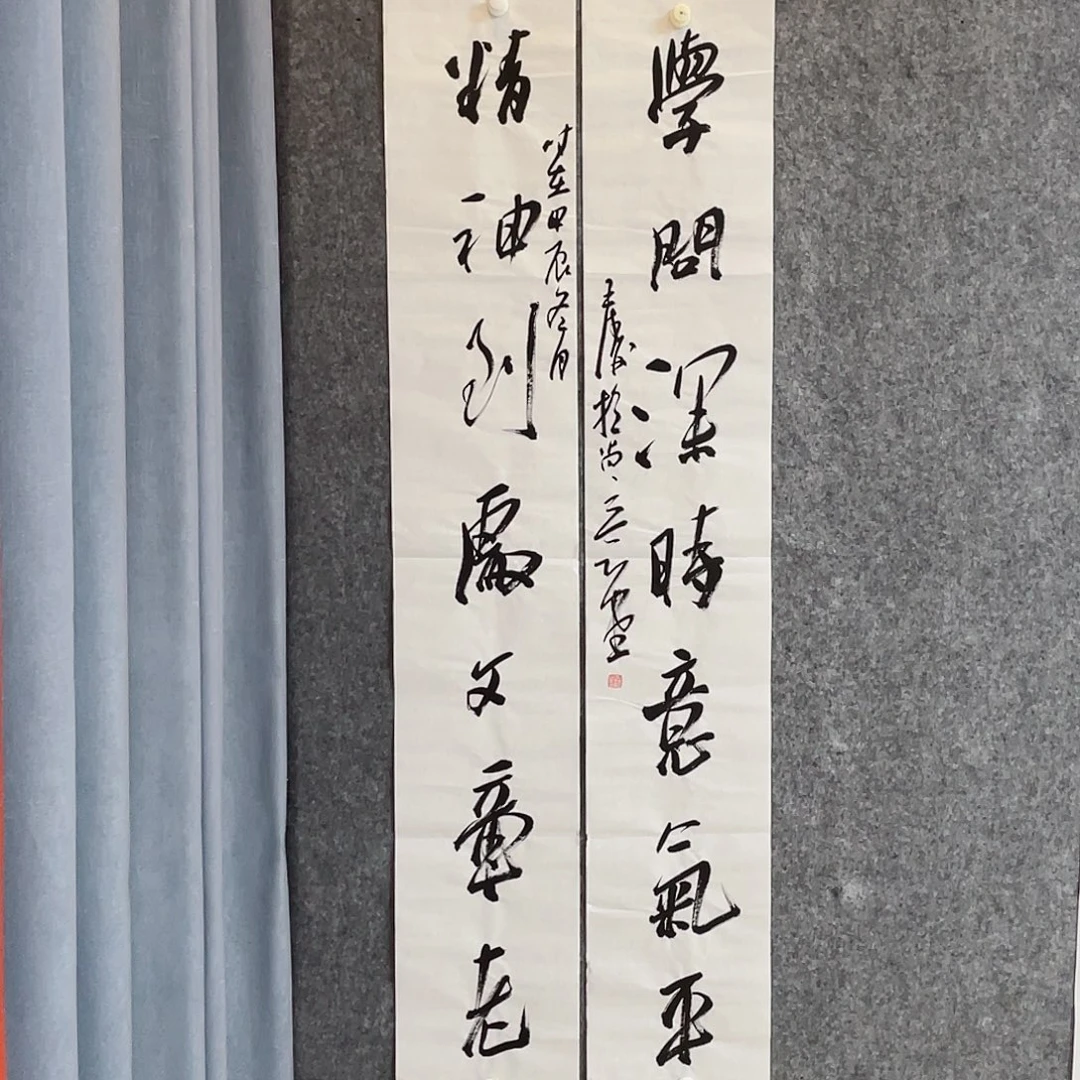 學問深時意氣平
精神到處文章老
時在甲辰冬月
於尚
堂